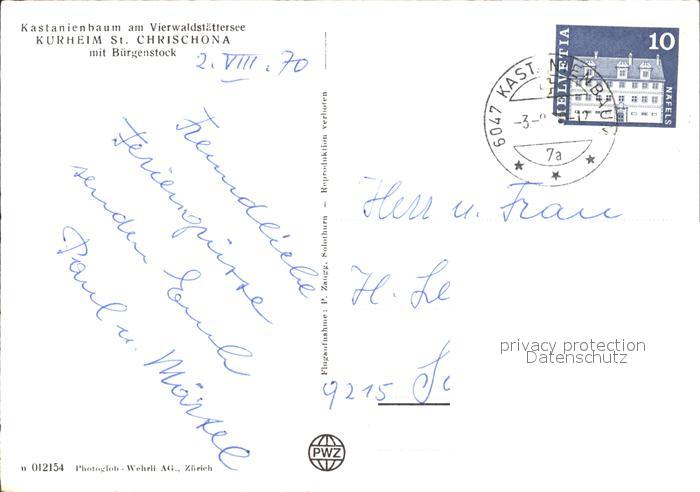 Kastanienbaum am Vierwaldstättersee
KURHEIM St. CHRISCHONA
mit Bürgenstock
2. VIII. 70
Freundliche
Feriengrüsse
senden Euch
Paul u.
Flugaufnahme: P. Zaugg, Solothurn – Reproduktion verboten
HELVETIA
10
NÄFELS
6047 KASTANIENBAUM
7a
Herr u. Frau
H. Le
privacy protection
Datenschutz
9215 Sc
PWZ
n 012154 Photoglob-Wehrli AG., Zürich